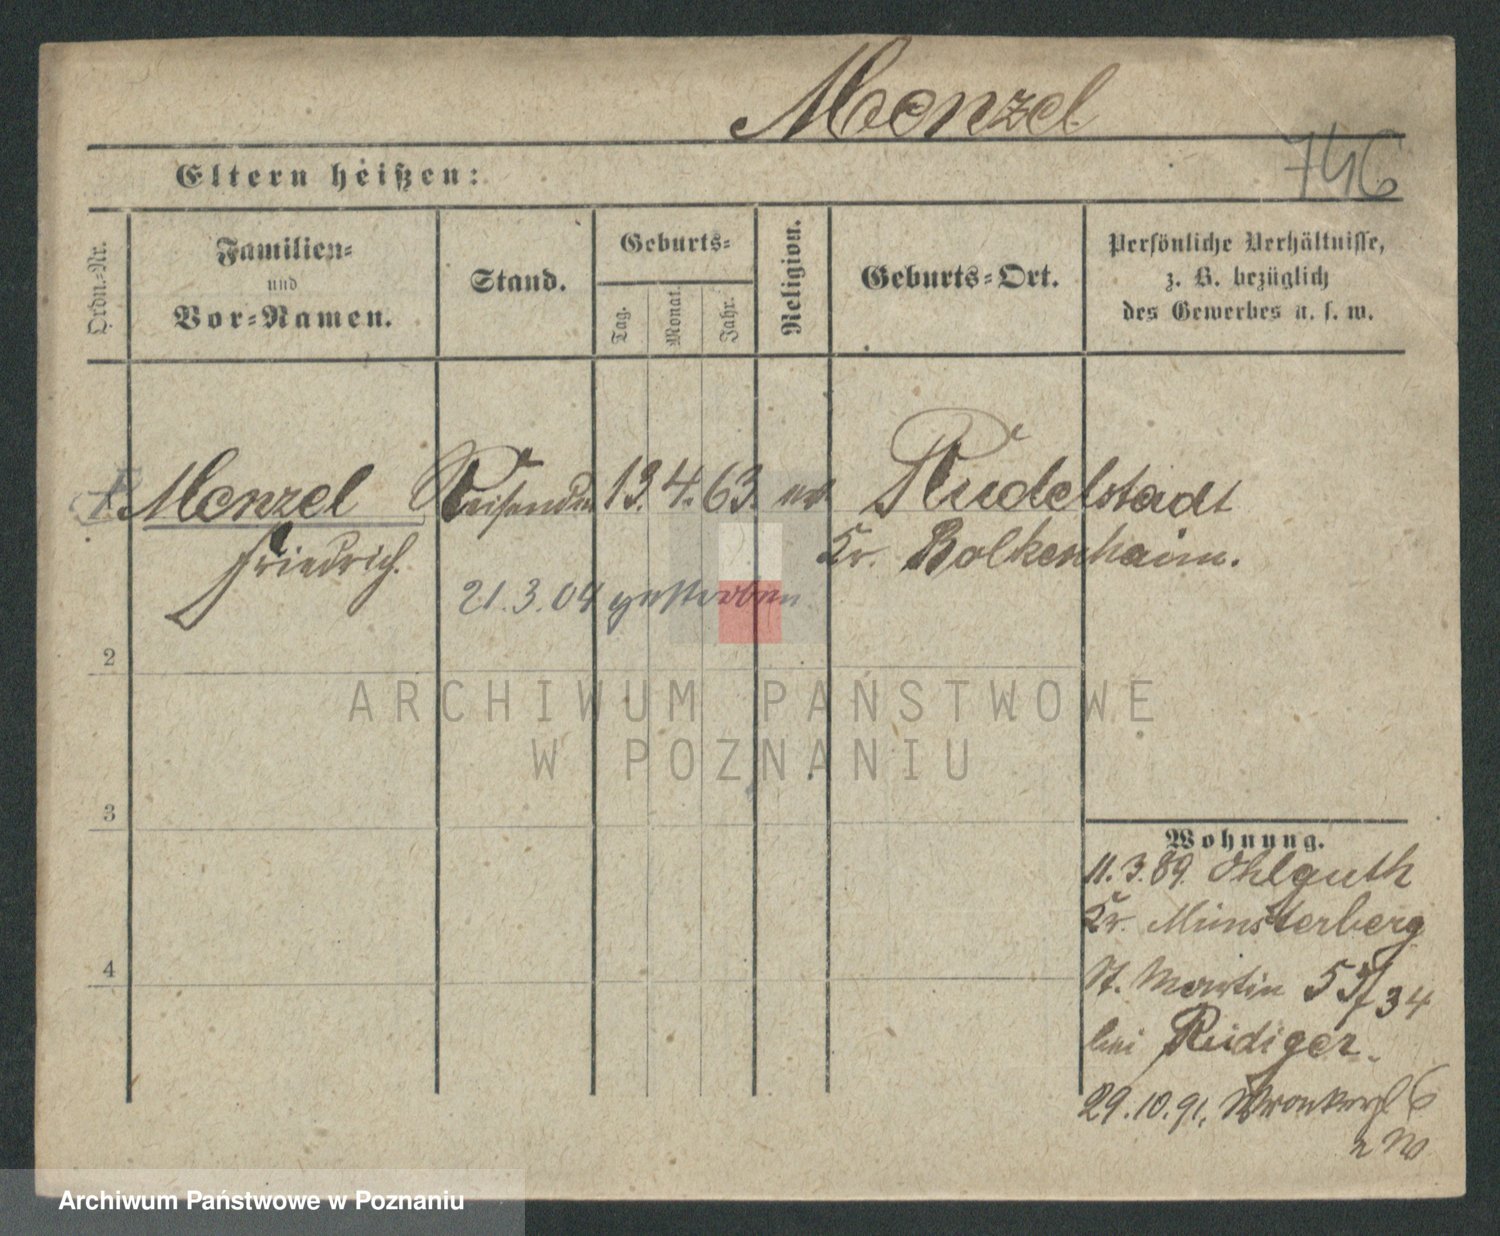 Menzel
746
Eltern heißen:
Ordn.-Nr.
Familien-
und
Vor-Namen.
Stand.
Geburts-
Tag.
Monat.
Jahr.
Religion.
Geburts-Ort.
Persönliche Verhältnisse,
z. B. bezüglich
des Gewerbes u. s. w.
Menzel Reisender 13. 4. 63. Rudelstadt
Friedrich. Kr. Bolkenhain.
21.3.04 gestorben
2
3
4
Wohnung.
11.3.89. Ohlguth
Kr. Münsterberg
St. Martin 53/34
bei Rudiger.
29.10.91. 6
ARCHIWUM PAŃSTWOWE
W POZNANIU
Archiwum Państwowe w Poznaniu